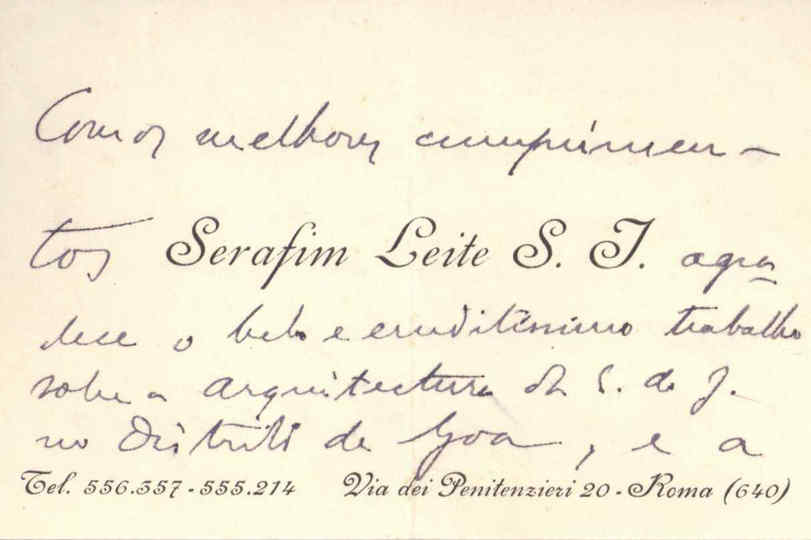 Com os melhores cumprimen-
tos Serafim Leite S. J. agra
dece o belo e eruditíssimo trabalho
sobre a arquitectura da C. de J.
no Distrito de Goa, e a
Tel. 556.357 - 555.214 Via dei Penitenzieri 20 - Roma (640)